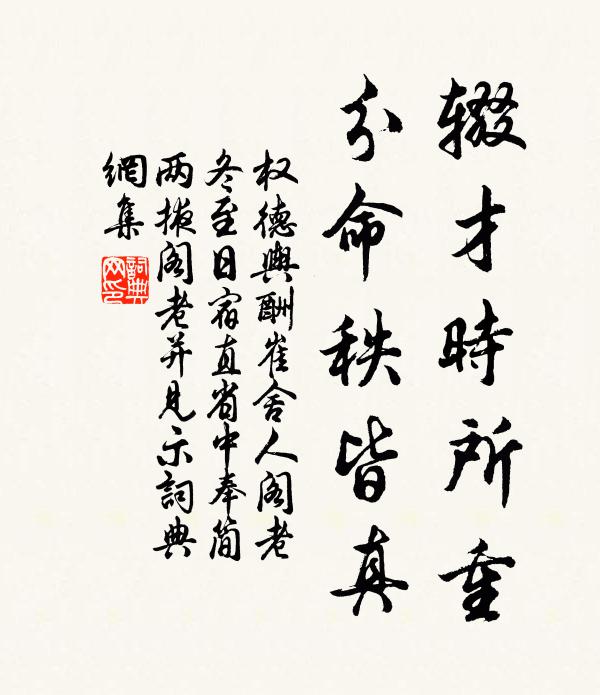 辍才時所重
分命秩皆真
权德輿酬崔舍人阁老
冬至日宿直省中奉简
两掖阁老并見示詞典
網集
詞典
网印